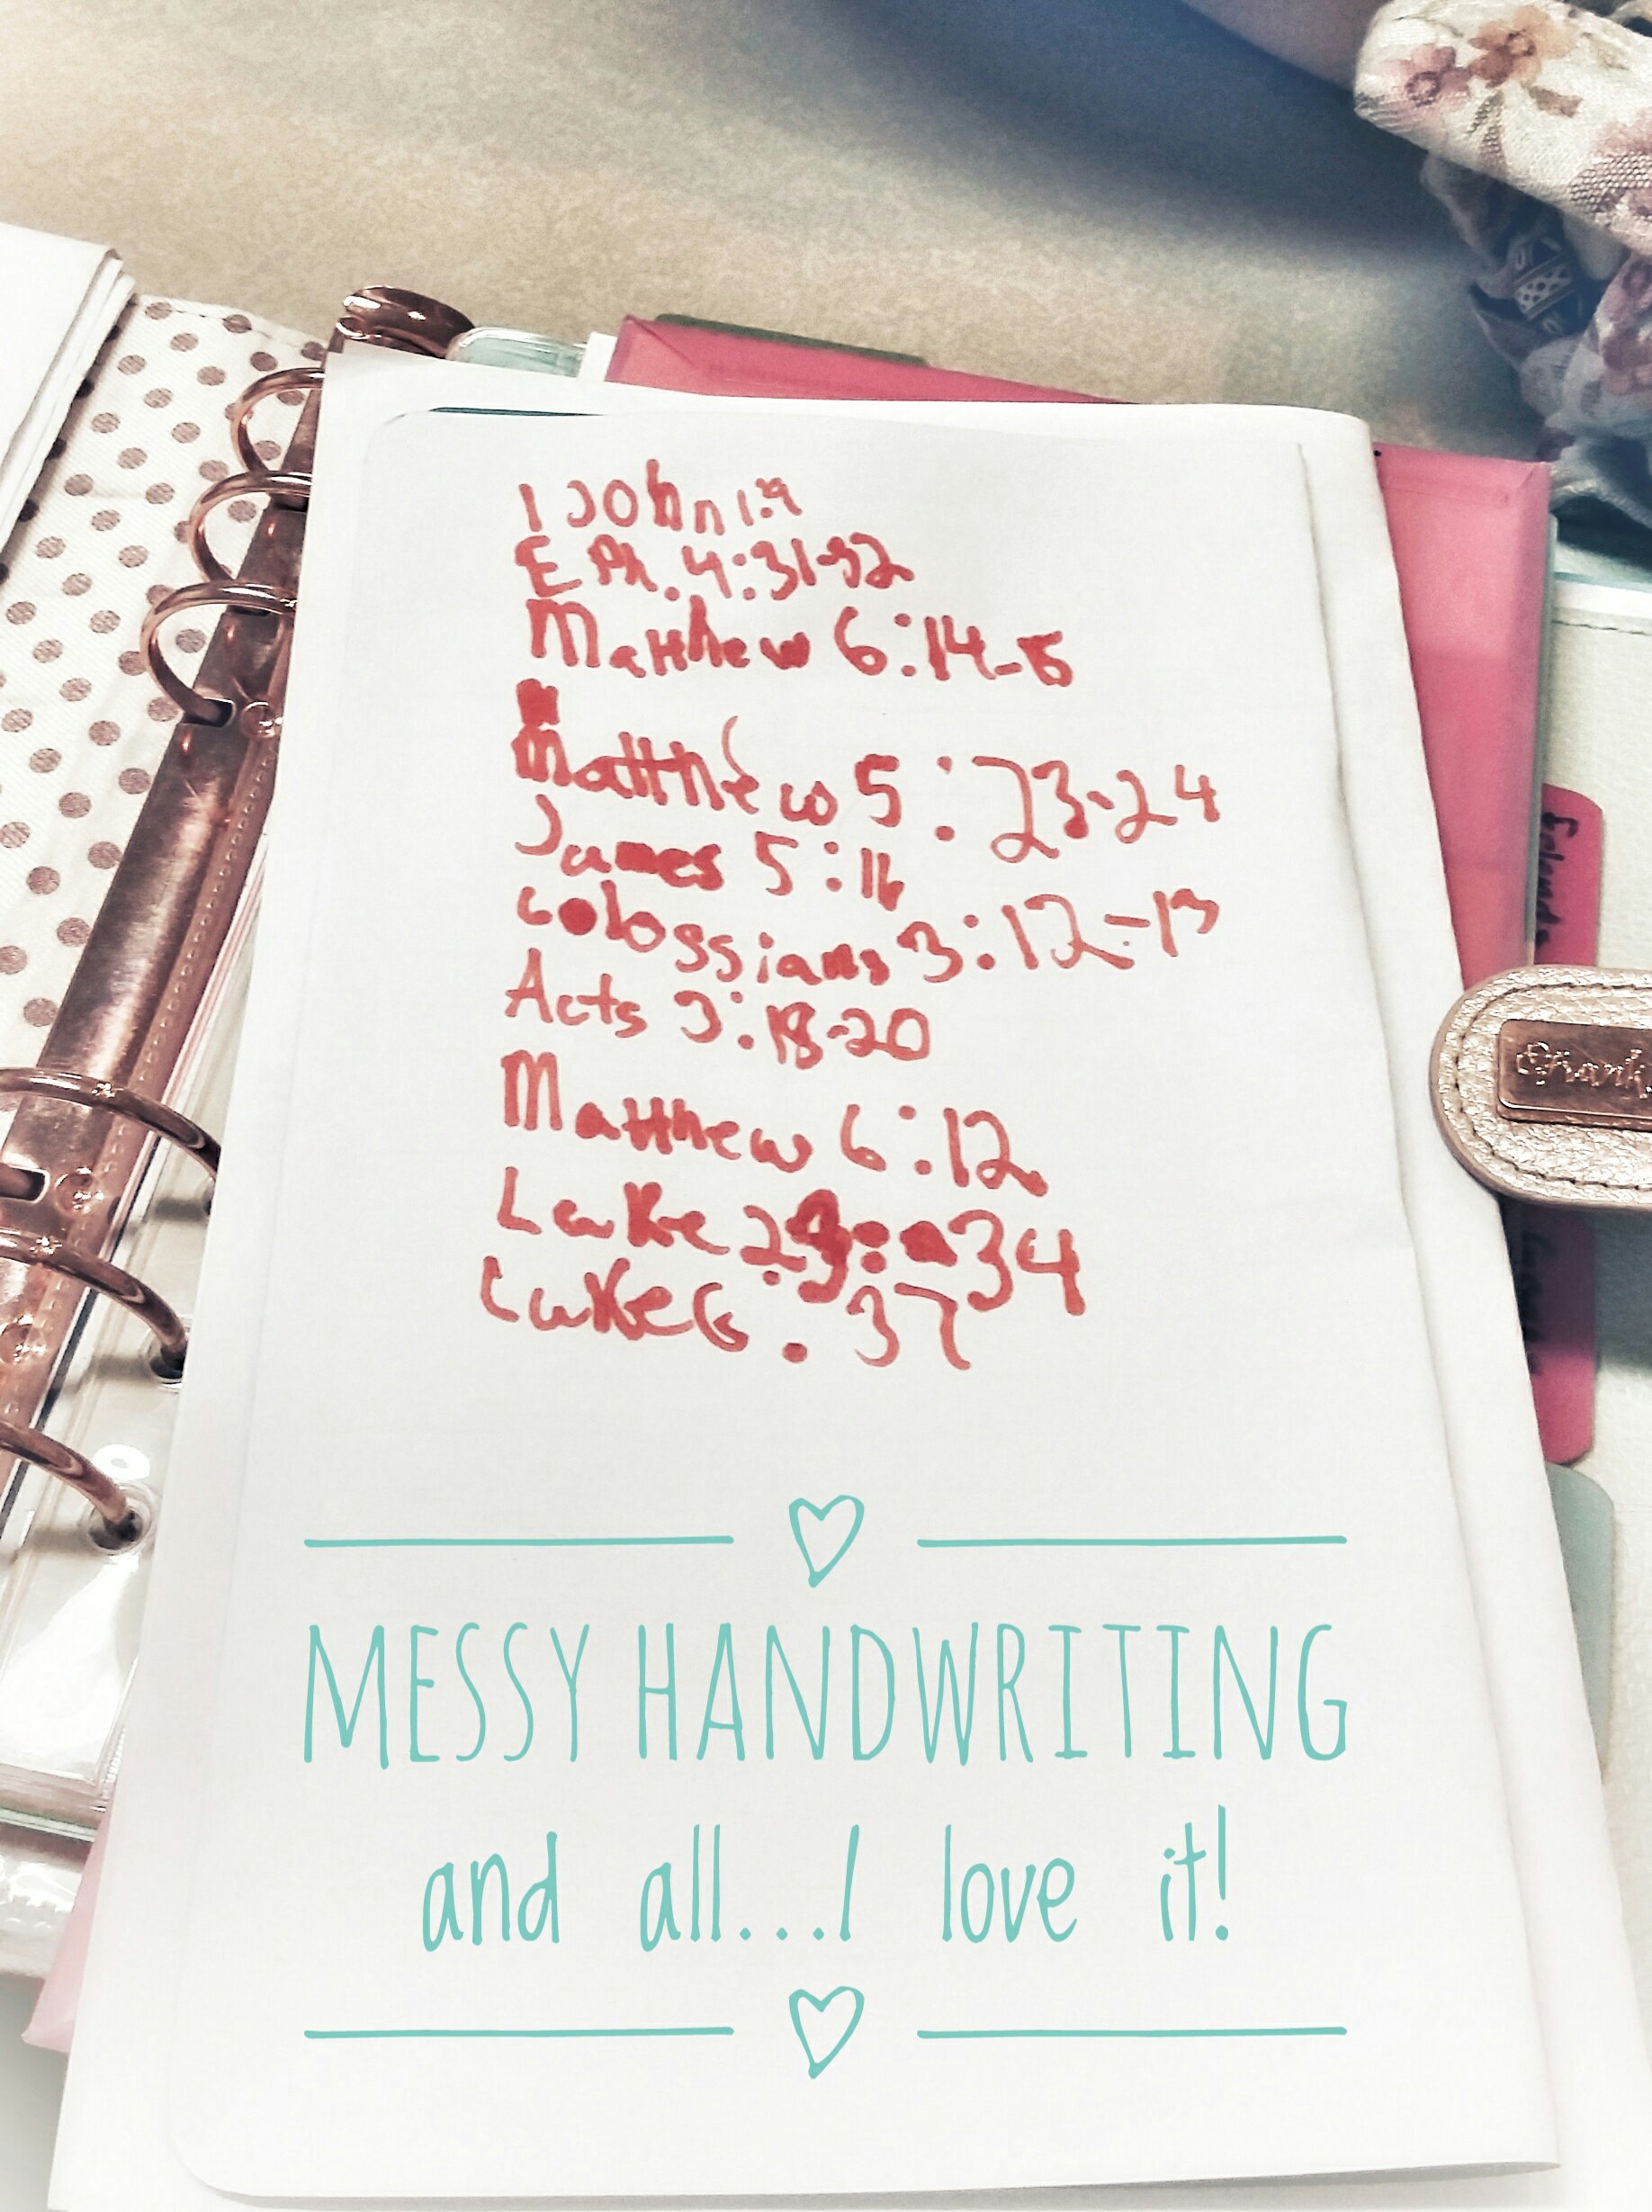 1 John 1:9
Eph. 4:31-32
Matthew 6:14-15
Matthew 5:23-24
James 5:16
colossians 3:12-13
Acts 3:18-20
Matthew 6:12
Luke 23:34
Luke 6:37
MESSY HANDWRITING
and all...I love it!